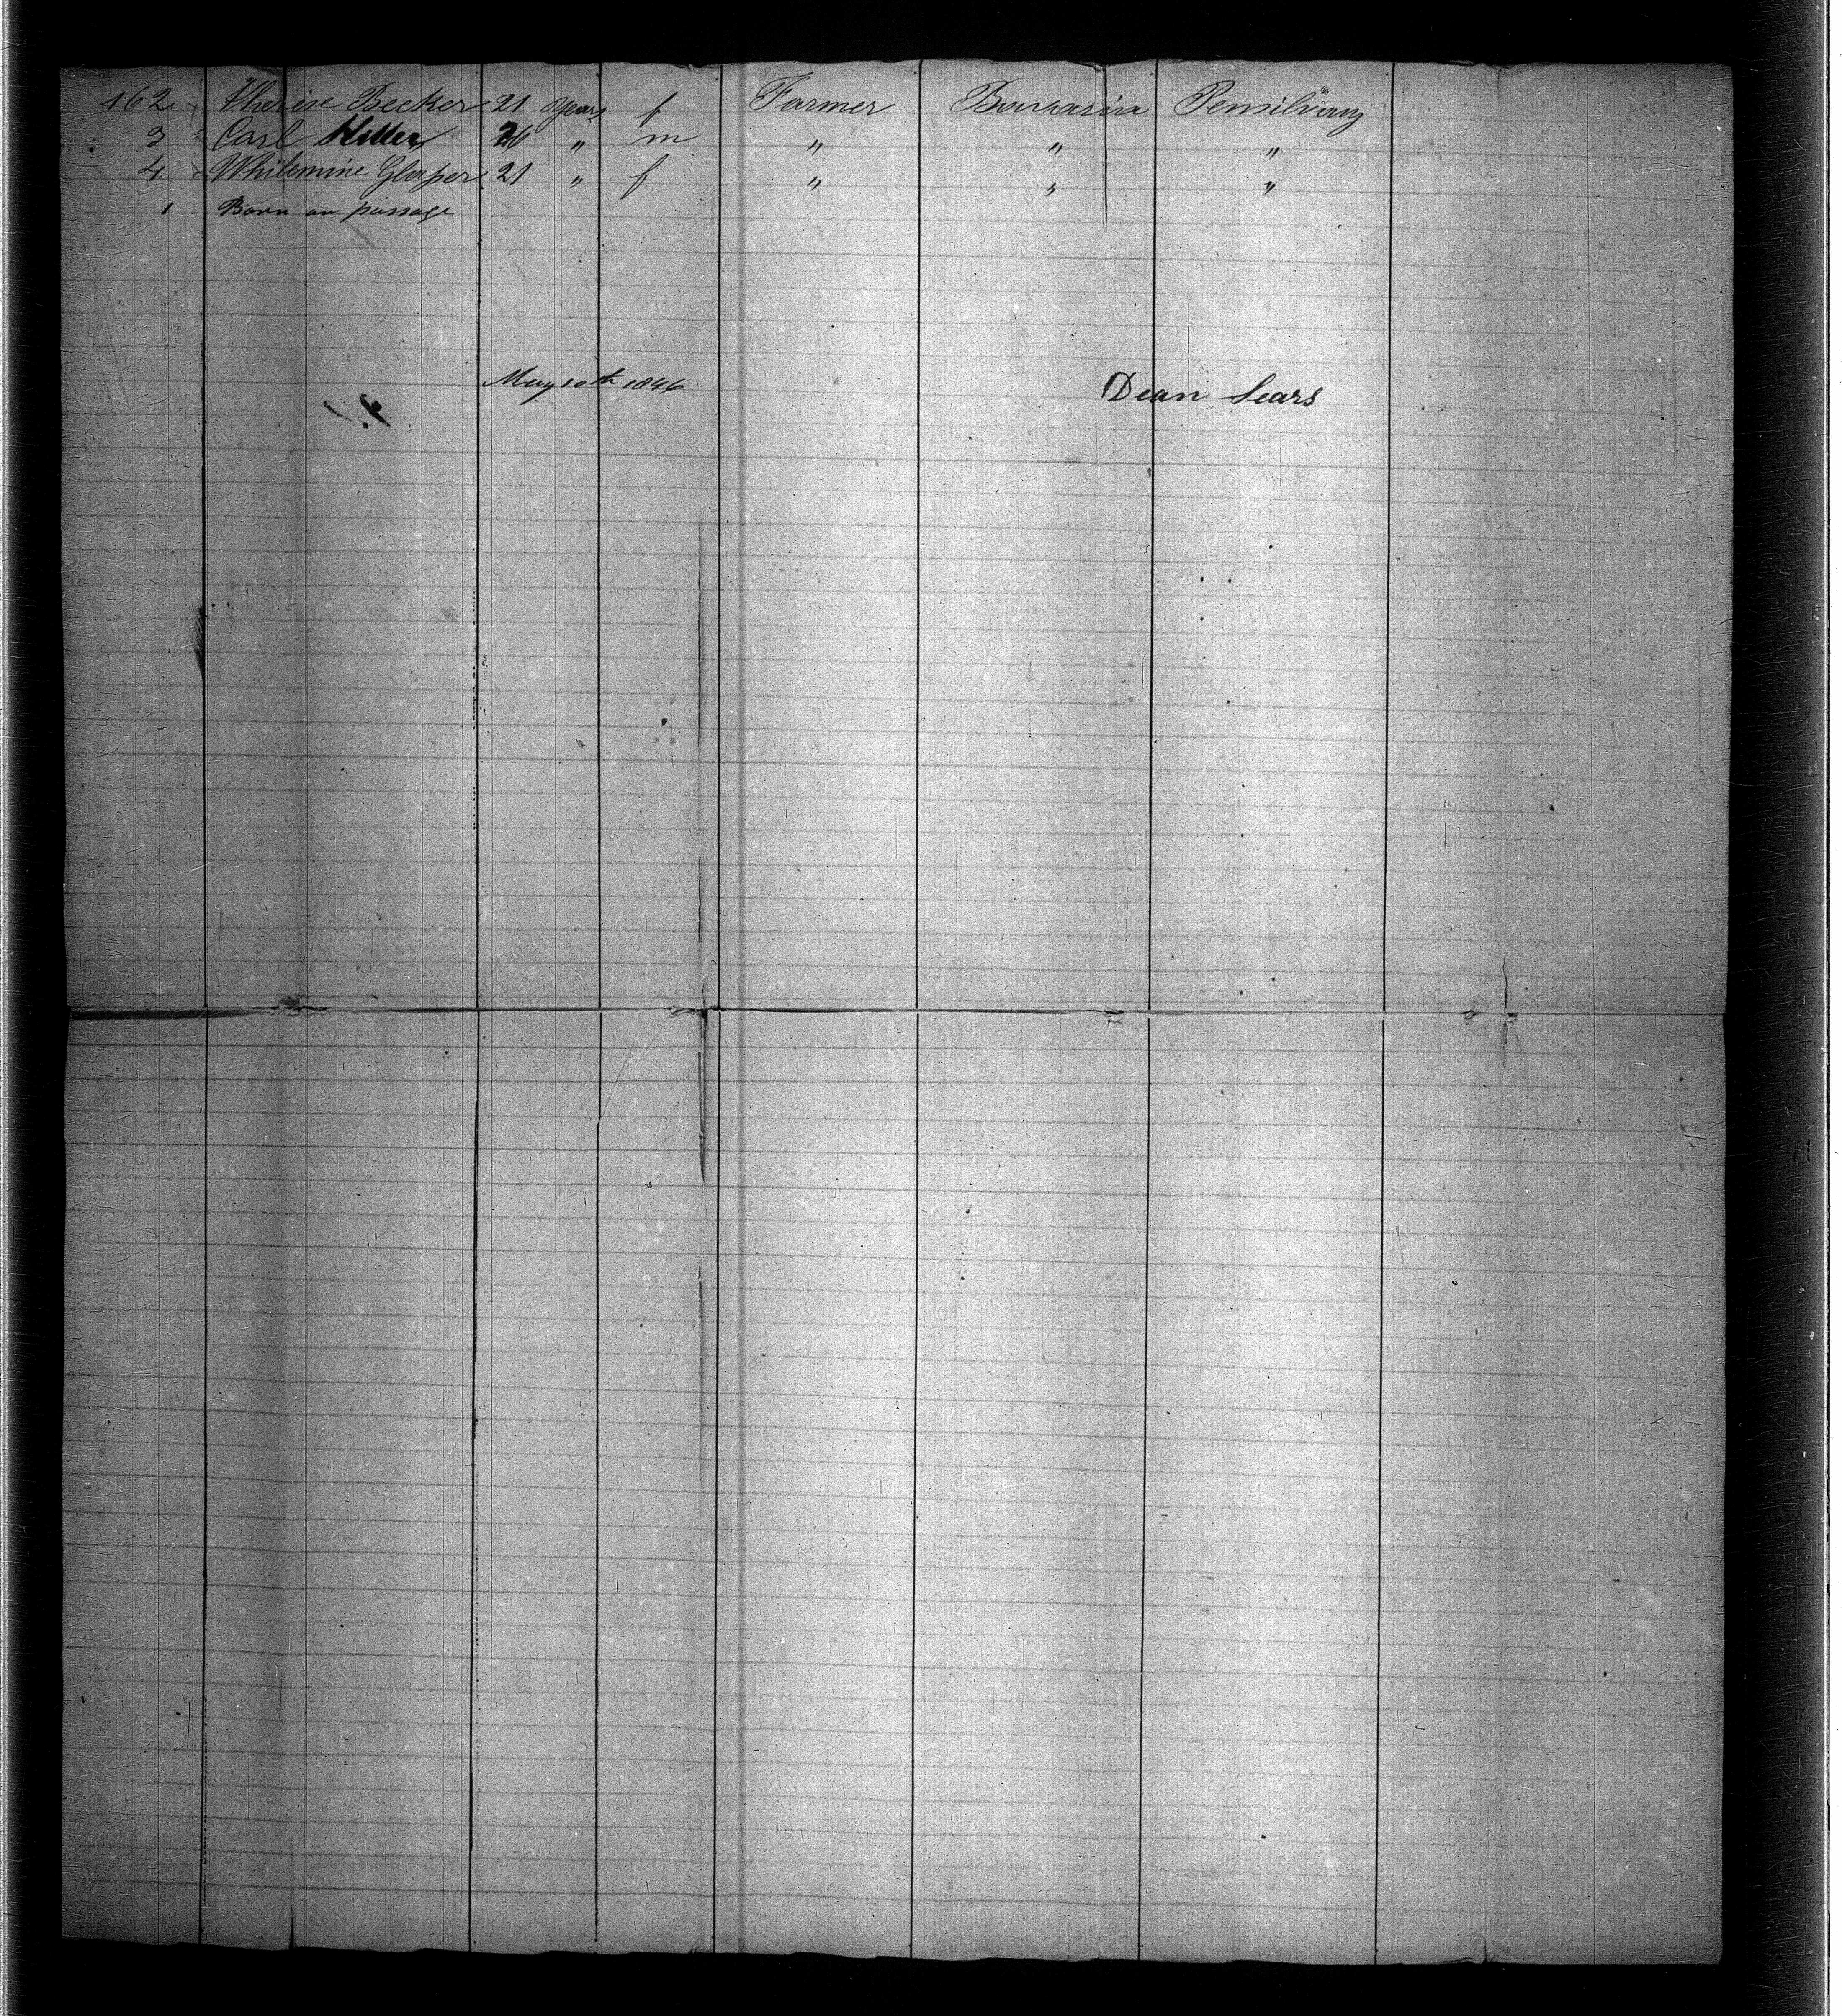 162 Therese Becker 21 years f Farmer Bavaria Pensilvany
3 Carl Heller 26 " m " " "
4 Whilemine Glaser 21 " f " " "
1 Born on passage
May 10th 1846 Dean Sears